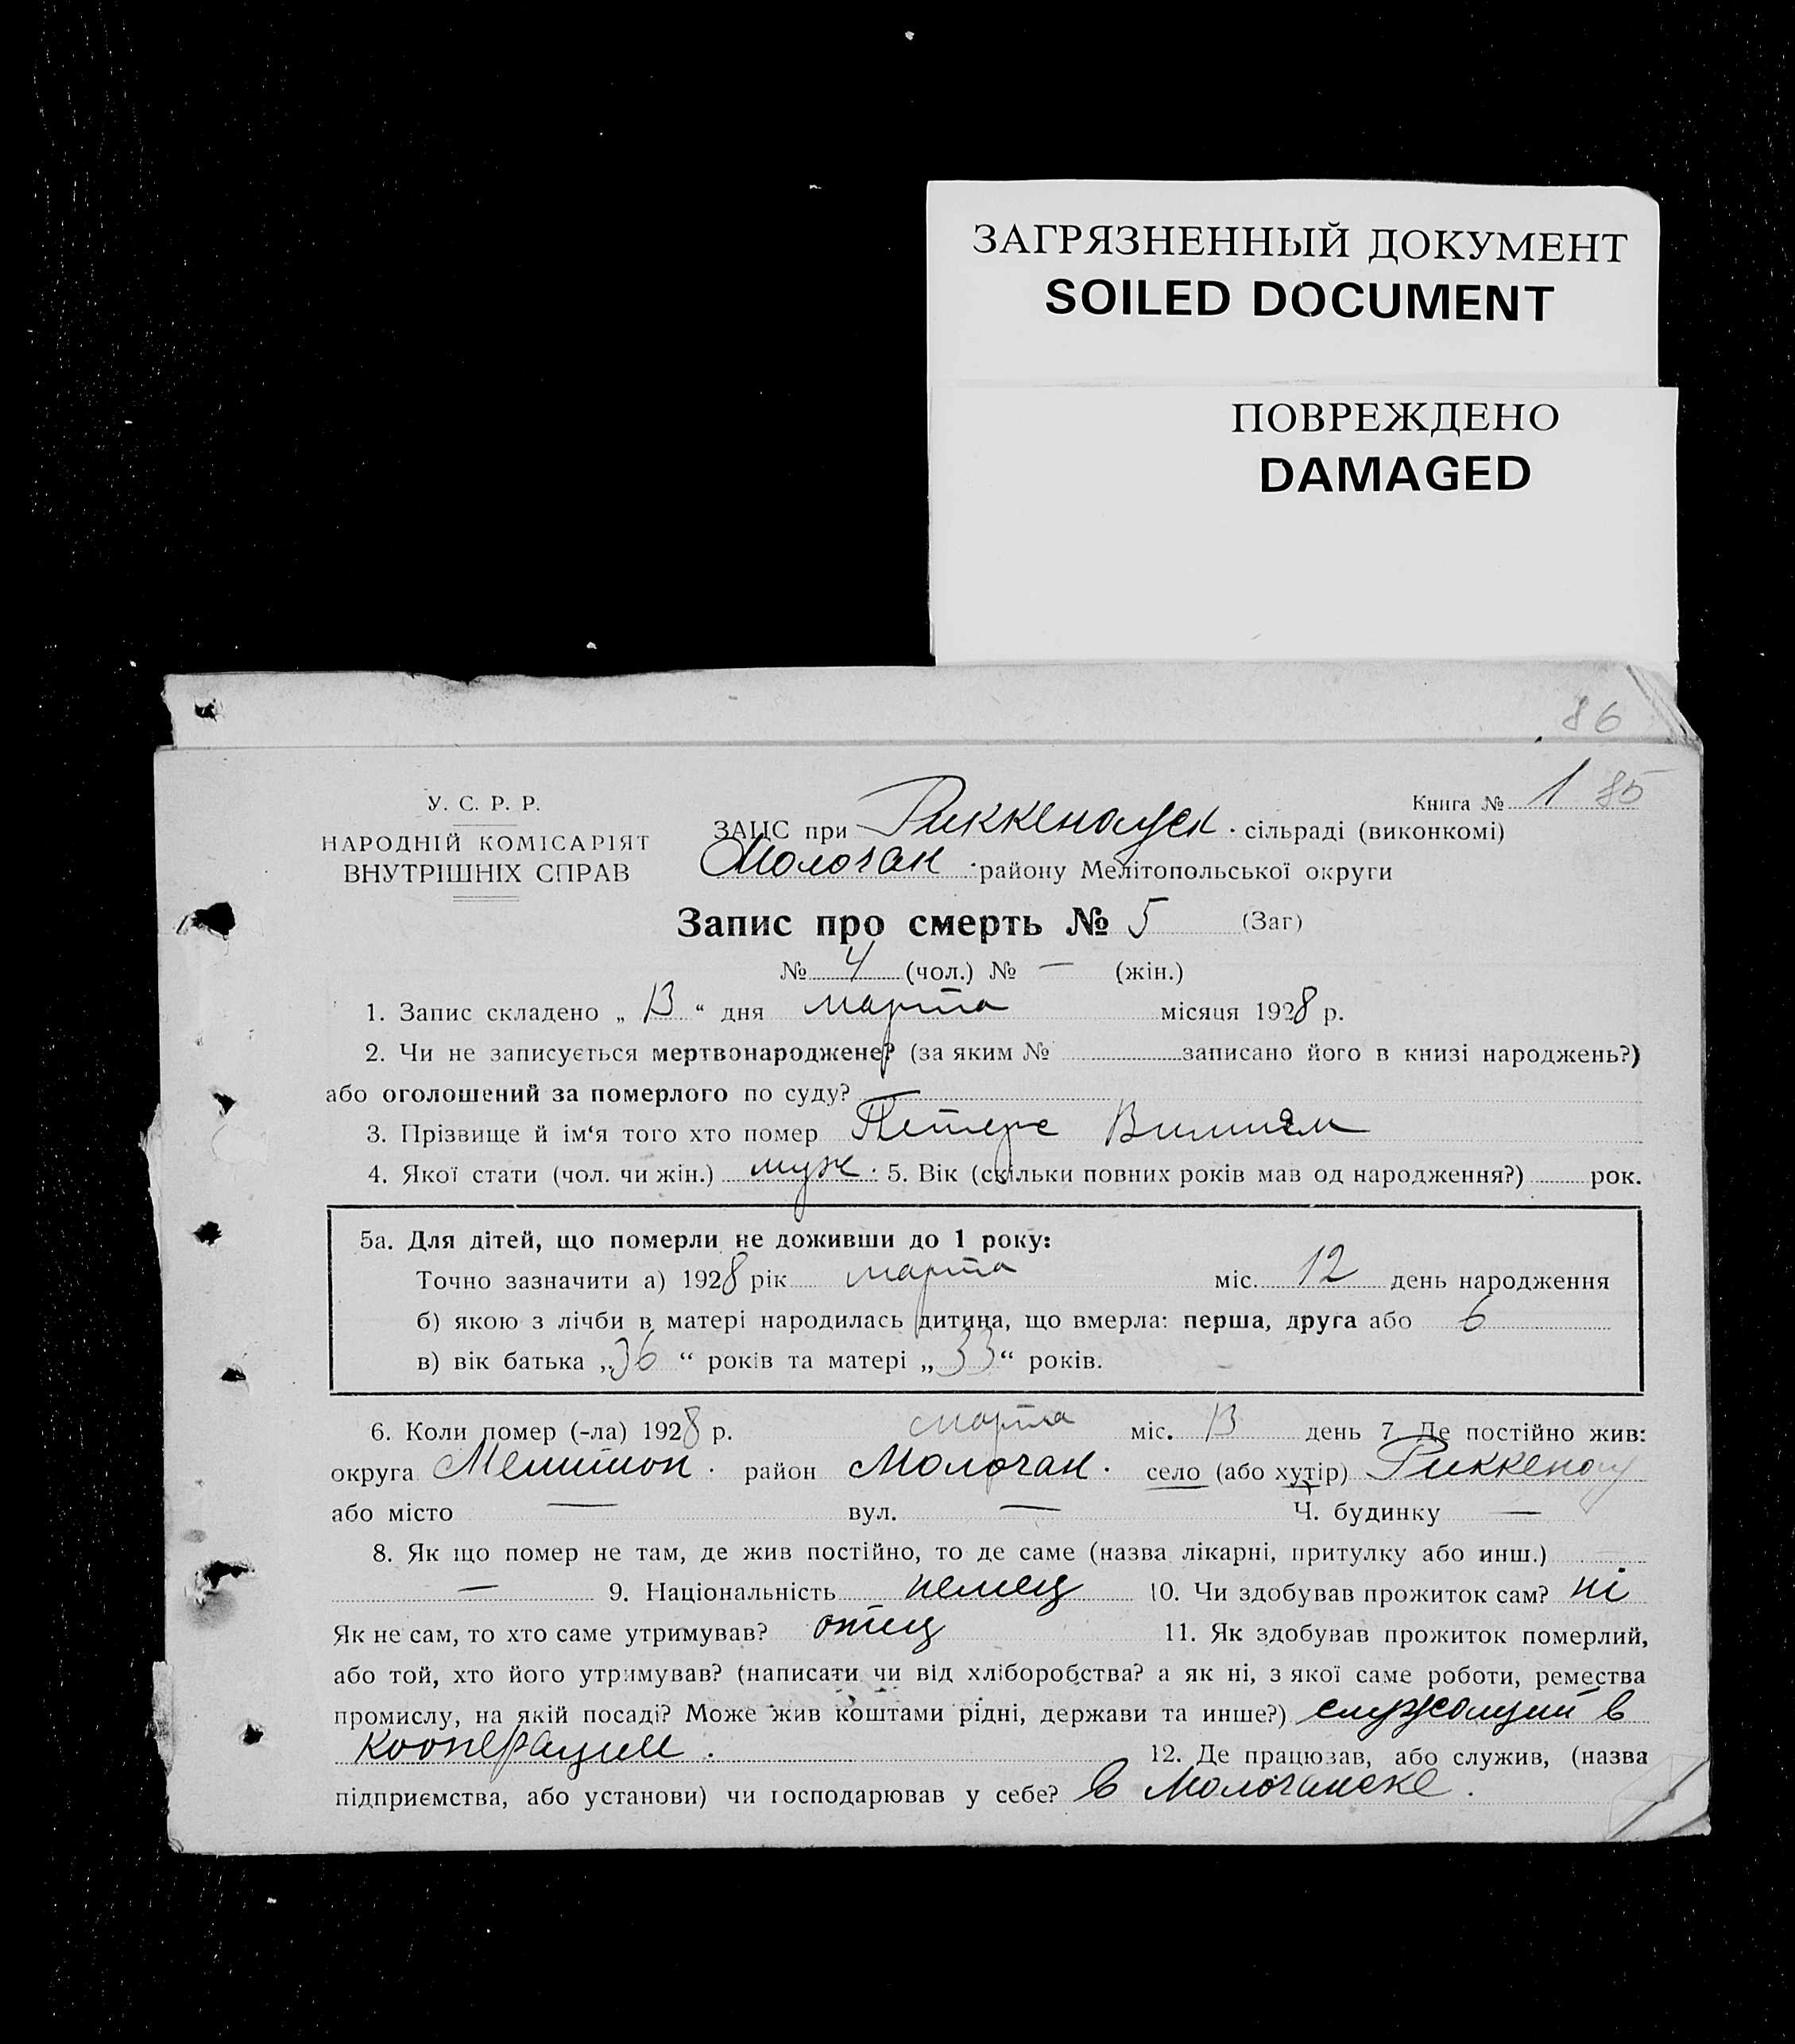 ЗАГРЯЗНЕННЫЙ ДОКУМЕНТ
SOILED DOCUMENT
ПОВРЕЖДЕНО
DAMAGED
86
У. С. Р. Р.
НАРОДНІЙ КОМІСАРІЯТ
ВНУТРІШНІХ СПРАВ
Книга № 1 85
ЗАЦС при Риккенауск. сільраді (виконкомі)
Молочан. району Мелітопольської округи
Запис про смерть № 5 (Заг)
№ 4 (чол.) № — (жін.)
1. Запис складено „ 13 “ дня марта місяця 1928 р.
2. Чи не записується мертвонароджене? (за яким № записано його в книзі народжень?)
або оголошений за померлого по суду?
3. Прізвище й ім‘я того хто помер Петерс
4. Якої стати (чол. чи жін.) муж. 5. Вік (скільки повних років мав од народження?) рок.
5а. Для дітей, що померли не доживши до 1 року:
Точно зазначити а) 1928 рік марта міс. 12 день народження
б) якою з лічби в матері народилась дитина, що вмерла: перша, друга або 6
в) вік батька „ 36 “ років та матері „ 33 “ років.
6. Коли помер (-ла) 1928 р. марта міс. 13 день 7. Де постійно жив:
округа Мелитоп. район Молочан. село (або хутір) Риккенау
або місто — вул. — Ч. будинку —
8. Як що помер не там, де жив постійно, то де саме (назва лікарні, притулку або инш.)
— 9. Національність немец 10. Чи здобував прожиток сам? ні
Як не сам, то хто саме утримував? отец 11. Як здобував прожиток померлий,
або той, хто його утримував? (написати чи від хліборобства? а як ні, з якої саме роботи, ремества
промислу, на якій посаді? Може жив коштами рідні, держави та инше?) служащий в
кооперации. 12. Де працював, або служив, (назва
підприємства, або установи) чи господарював у себе? в Молочанске.